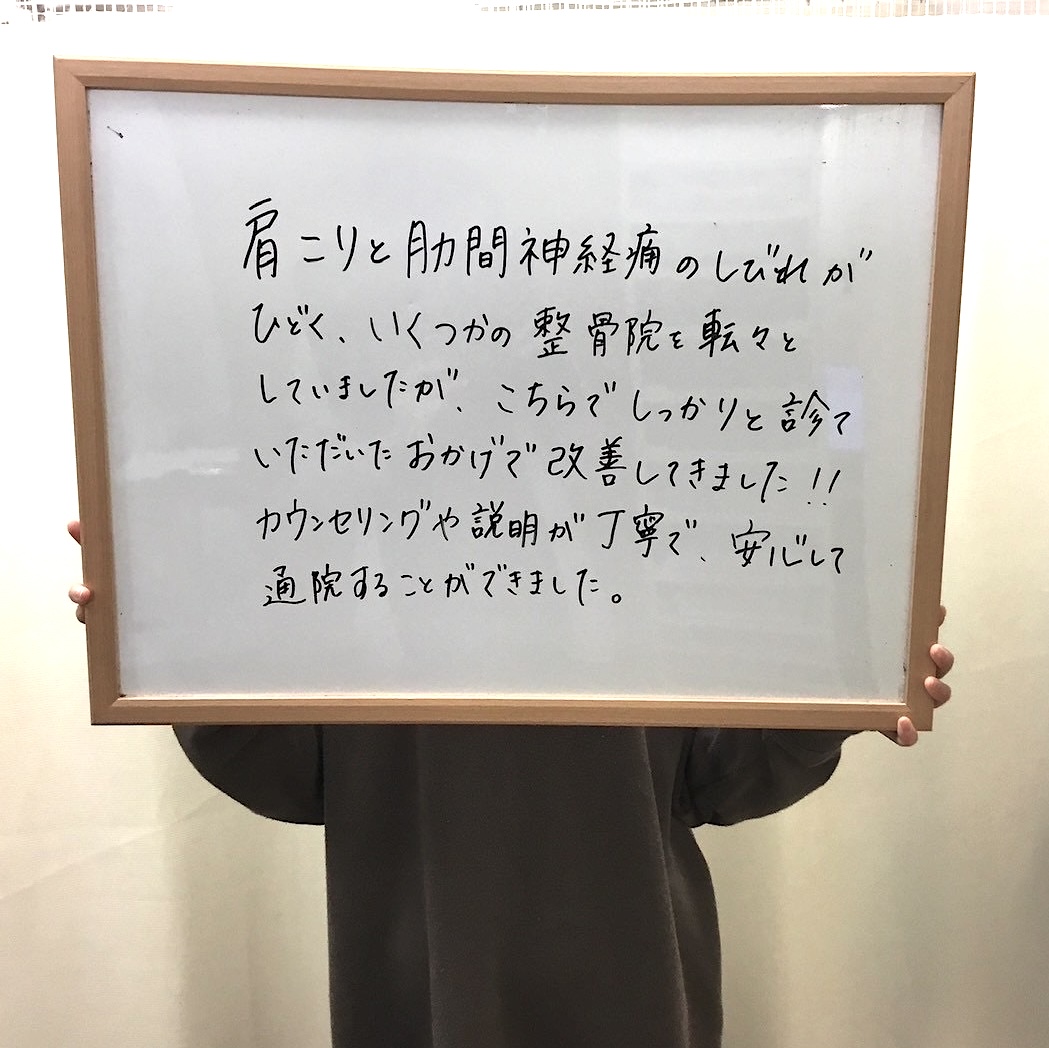 肩こりと肋間神経痛のしびれが
ひどく、いくつかの整骨院を転々と
していましたが、こちらでしっかりと診て
いただいたおかげで改善してきました!!
カウンセリングや説明が丁寧で、安心して
通院することができました。